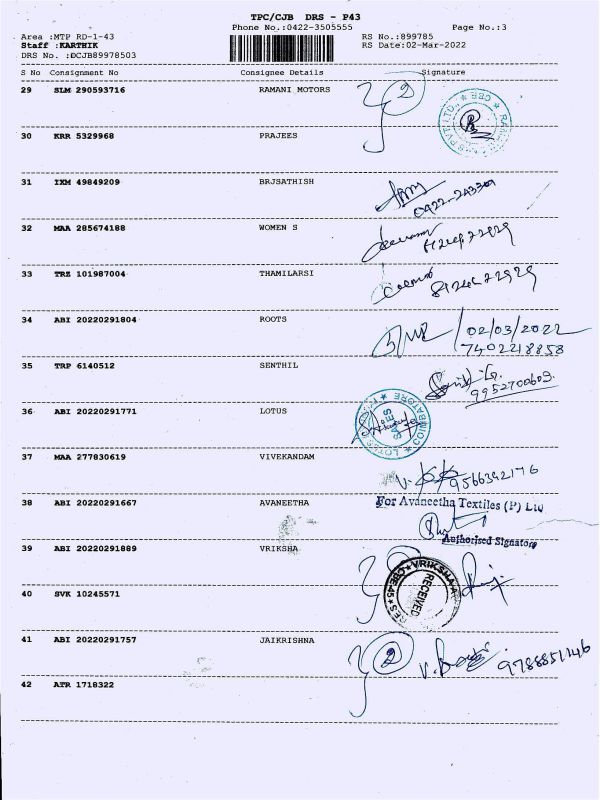 TPC/CJB DRS - P43
Phone No.:0422-3505555 Page No.:3
Area :MTP RD-1-43 RS No.:899785
Staff :KARTHIK RS Date:02-Mar-2022
DRS No. :DCJB89978503
S No Consignment No Consignee Details Signature
29 SLM 290593716 RAMANI MOTORS 2
30 KRR 5329968 PRAJEES
31 IXM 49849209 BRJSATHISH
32 MAA 285674188 WOMEN S
33 TRZ 101987004 THAMILARSI
34 ABI 20220291804 ROOTS 02/03/2022
7402218858
35 TRP 6140512 SENTHIL
9952700609
36 ABI 20220291771 LOTUS
37 MAA 277830619 VIVEKANDAM 9566392176
38 ABI 20220291667 AVANEETHA For Avaneetha Textiles (P) Ltd
Authorised Signatory
39 ABI 20220291889 VRIKSHA
RECEIVED
40 SVK 10245571
41 ABI 20220291757 JAIKRISHNA 2
42 ATR 1718322